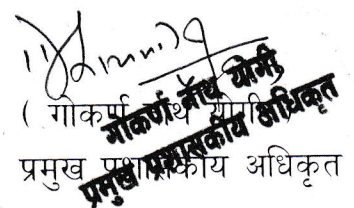 ( गोकर्ण नाथ योगी )
प्रमुख प्रशासकीय अधिकृत
गोकर्ण नाथ योगी
प्रमुख प्रशासकीय अधिकृत